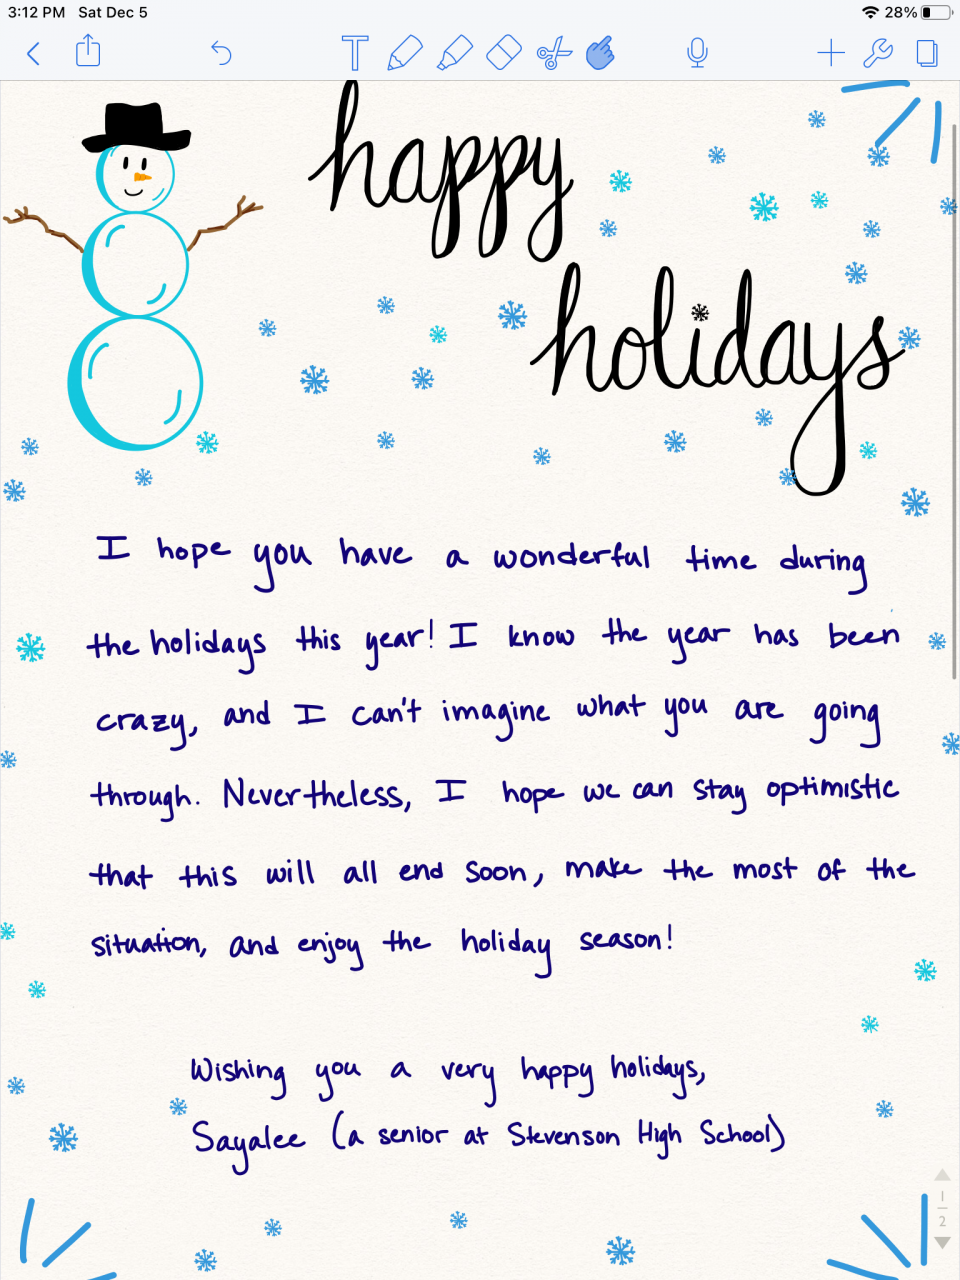 3:12 PM Sat Dec 5 28%
happy
holidays
I hope you have a wonderful time during
the holidays this year! I know the year has been
crazy, and I can't imagine what you are going
through. Nevertheless, I hope we can stay optimistic
that this will all end soon, make the most of the
situation, and enjoy the holiday season!
Wishing you a very happy holidays,
Sayalee (a senior at Stevenson High School)
1
2